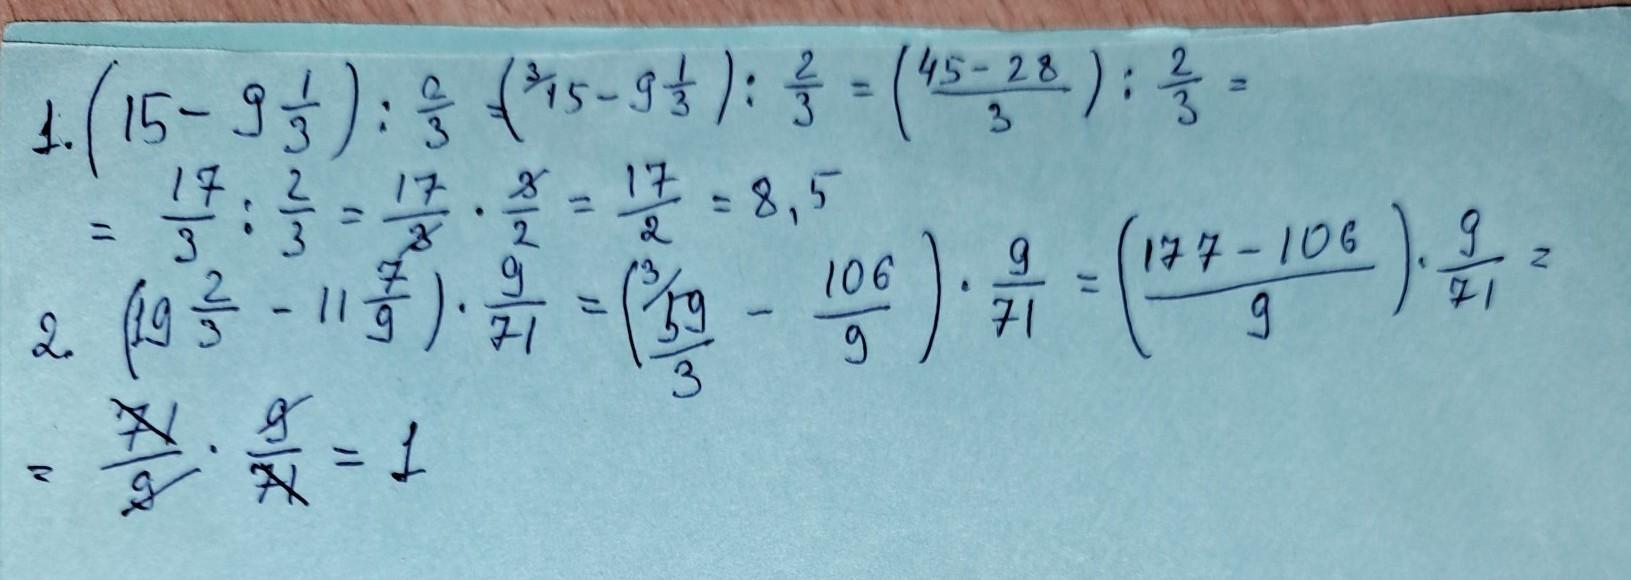 1. (15 - 9 1/3) : 2/3 = (³/15 - 9 1/3) : 2/3 = ((45 - 28)/3) : 2/3 =
= 17/3 : 2/3 = 17/3 · 3/2 = 17/2 = 8,5
2. (19 2/3 - 11 7/9) · 9/71 = (³/59/3 - 106/9) · 9/71 = ((177 - 106)/9) · 9/71 =
= 71/9 · 9/71 = 1